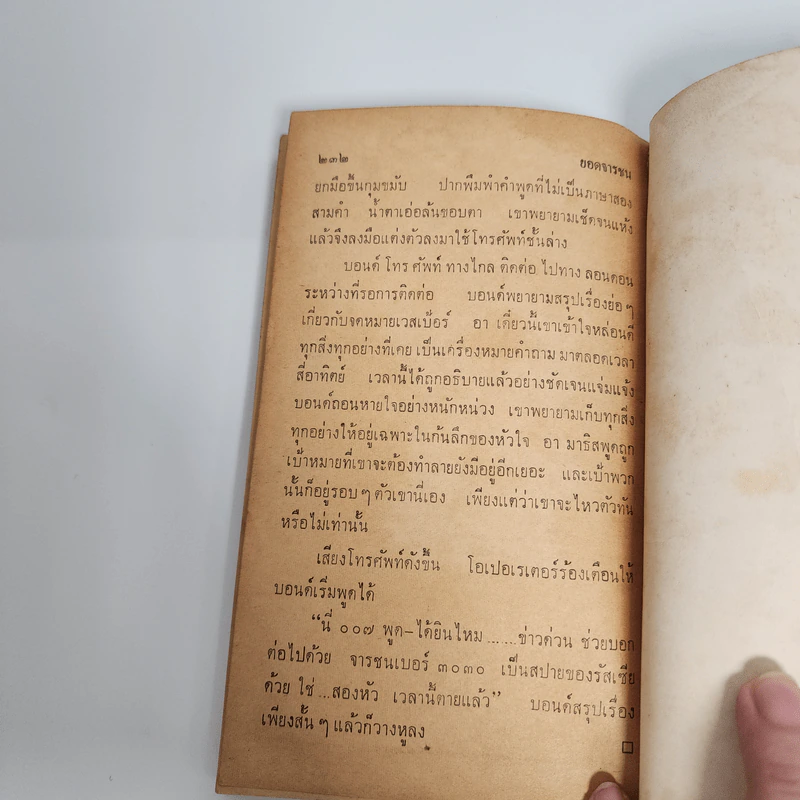 ๒๓๒ ยอดจารชน
ยกมือขึ้นกุมขมับ ปากพึมพำคำพูดที่ไม่เป็นภาษาสอง
สามคำ น้ำตาเอ่อล้นขอบตา เขาพยายามเช็ดจนแห้ง
แล้วจึงลงมือแต่งตัวลงมาใช้โทรศัพท์ชั้นล่าง
บอนด์ โทร ศัพท์ ทางไกล ติดต่อ ไปทาง ลอนดอน
ระหว่างที่รอการติดต่อ บอนด์พยายามสรุปเรื่องย่อๆ
เกี่ยวกับจดหมายเวสเปอร์ อา เดี๋ยวนี้เขาเข้าใจหล่อนดี
ทุกสิ่งทุกอย่างที่เคย เป็นเครื่องหมายคำถาม มาตลอดเวลา
สี่อาทิตย์ เวลานี้ได้ถูกอธิบายแล้วอย่างชัดเจนแจ่มแจ้ง
บอนด์ถอนหายใจอย่างหนักหน่วง เขาพยายามเก็บทุกสิ่ง
ทุกอย่างให้อยู่เฉพาะในก้นลึกของหัวใจ อา มาธิสพูดถูก
เป้าหมายที่เขาจะต้องทำลายยังมีอยู่อีกเยอะ และเป้าพวก
นั้นก็อยู่รอบๆ ตัวเขานี่เอง เพียงแต่ว่าเขาจะไหวตัวทัน
หรือไม่เท่านั้น
เสียงโทรศัพท์ดังขึ้น โอเปอเรเตอร์ร้องเตือนให้
บอนด์เริ่มพูดได้
“นี่ ๐๐๗ พูด–ได้ยินไหม......ข่าวด่วน ช่วยบอก
ต่อไปด้วย จารชนเบอร์ ๓๐๓๐ เป็นสปายของรัสเซีย
ด้วย ใช่...สองหัว เวลานี้ตายแล้ว” บอนด์สรุปเรื่อง
เพียงสั้น ๆ แล้วก็วางหูลง